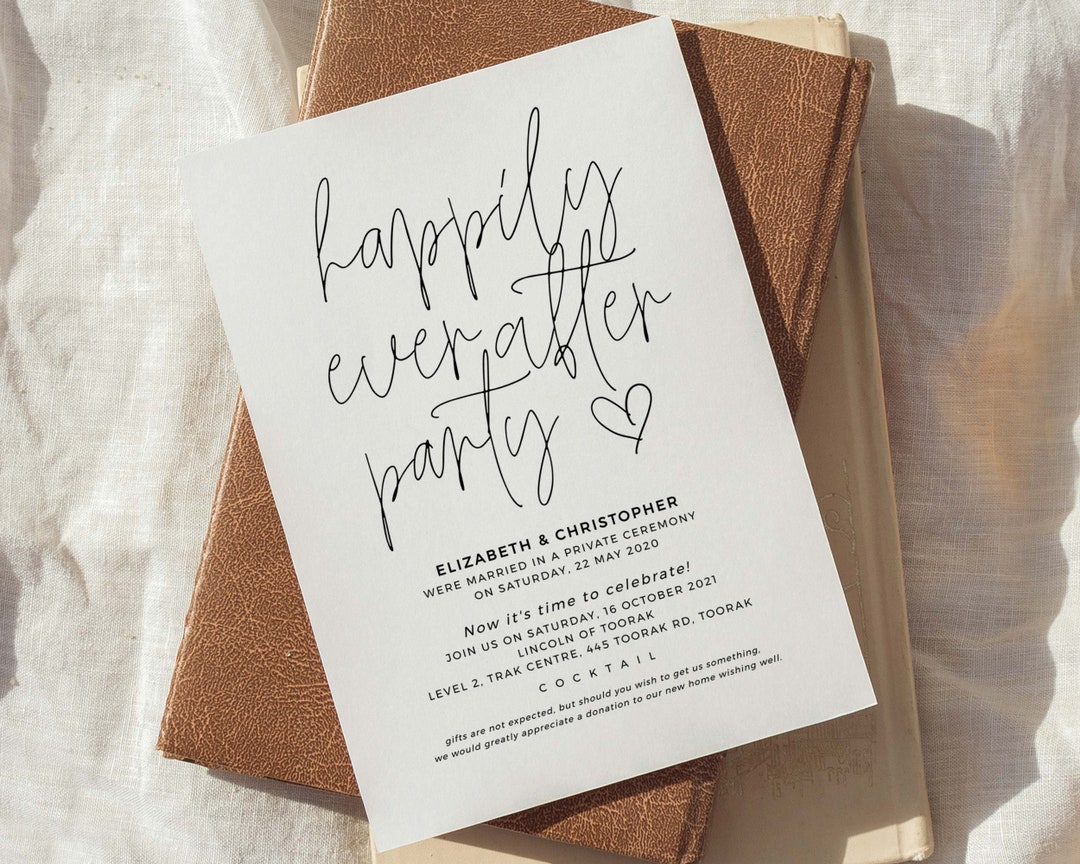 happily
ever after
party
ELIZABETH & CHRISTOPHER
WERE MARRIED IN A PRIVATE CEREMONY
ON SATURDAY, 22 MAY 2020
Now it's time to celebrate!
JOIN US ON SATURDAY, 16 OCTOBER 2021
LINCOLN OF TOORAK
LEVEL 2, TRAK CENTRE, 445 TOORAK RD, TOORAK
COCKTAIL
gifts are not expected, but should you wish to get us something,
we would greatly appreciate a donation to our new home wishing well.